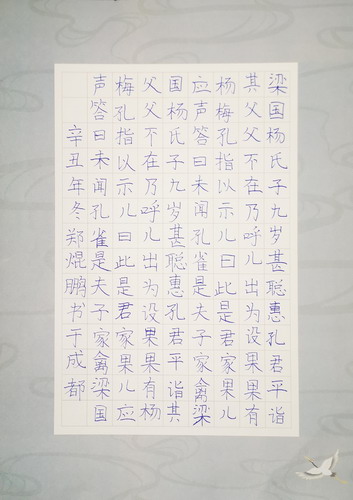 梁国杨氏子九岁甚聪惠孔君平诣
其父父不在乃呼儿出为设果果有
杨梅孔指以示儿曰此是君家果儿
应声答曰未闻孔雀是夫子家禽梁
国杨氏子九岁甚聪惠孔君平诣其
父父不在乃呼儿出为设果果有杨
梅孔指以示儿曰此是君家果儿应
声答曰未闻孔雀是夫子家禽梁国
辛丑年冬郑焜鹏书于成都